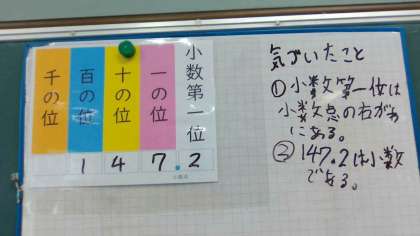 千の位
百の位
十の位
一の位
小数第一位
1 4 7.2
気づいたこと
① 小数第一位は
小数点の右がわ
にある。
② 147.2は小数
である。